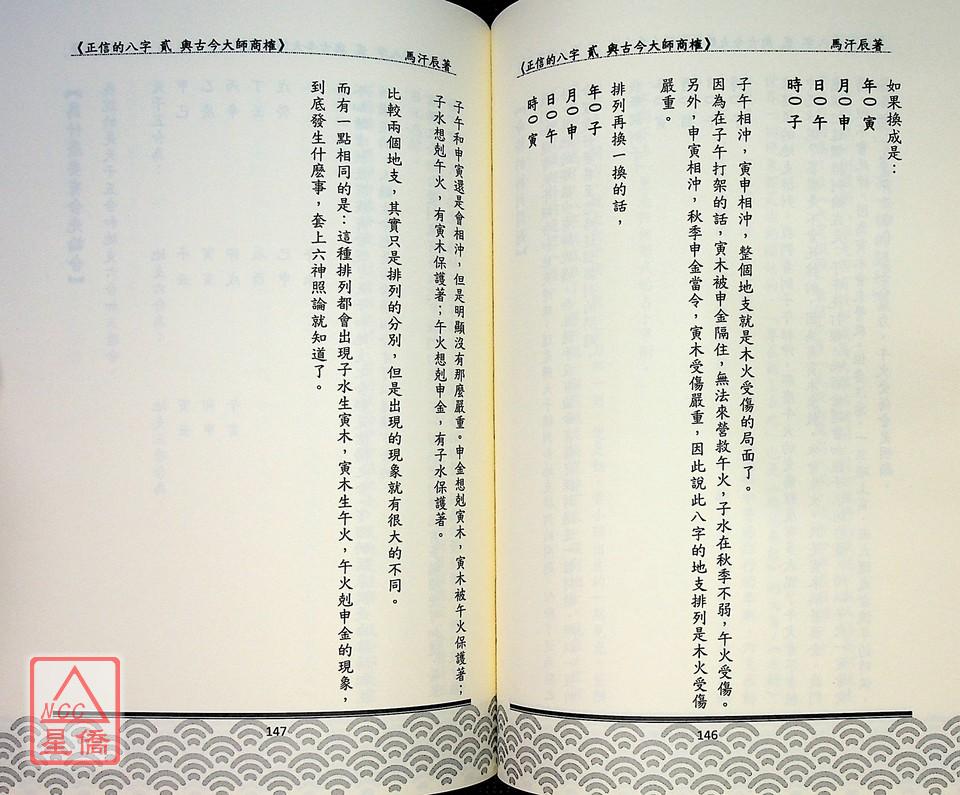 《正信的八字 貳 與古今大師商榷》
馬汗辰著
如果換成是：
年〇寅
月〇申
日〇午
時〇子
子午相沖，寅申相沖，整個地支就是木火受傷的局面了。
因為在子午打架的話，寅木被申金隔住，無法來營救午火，子水在秋季不弱，午火受傷。
另外，申寅相沖，秋季申金當令，寅木受傷嚴重，因此說此八字的地支排列是木火受傷
嚴重。
排列再換一換的話，
年〇子
月〇申
日〇午
時〇寅
146
《正信的八字 貳 與古今大師商榷》
馬汗辰著
子午和申寅還是會相沖，但是明顯沒有那麼嚴重。申金想剋寅木，寅木被午火保護著；
子水想剋午火，有寅木保護著；午火想剋申金，有子水保護著。
比較兩個地支，其實只是排列的分別，但是出現的現象就有很大的不同。
而有一點相同的是：這種排列都會出現子水生寅木，寅木生午火，午火剋申金的現象，
到底發生什麼事，套上六神照論就知道了。
147
NCC
星僑